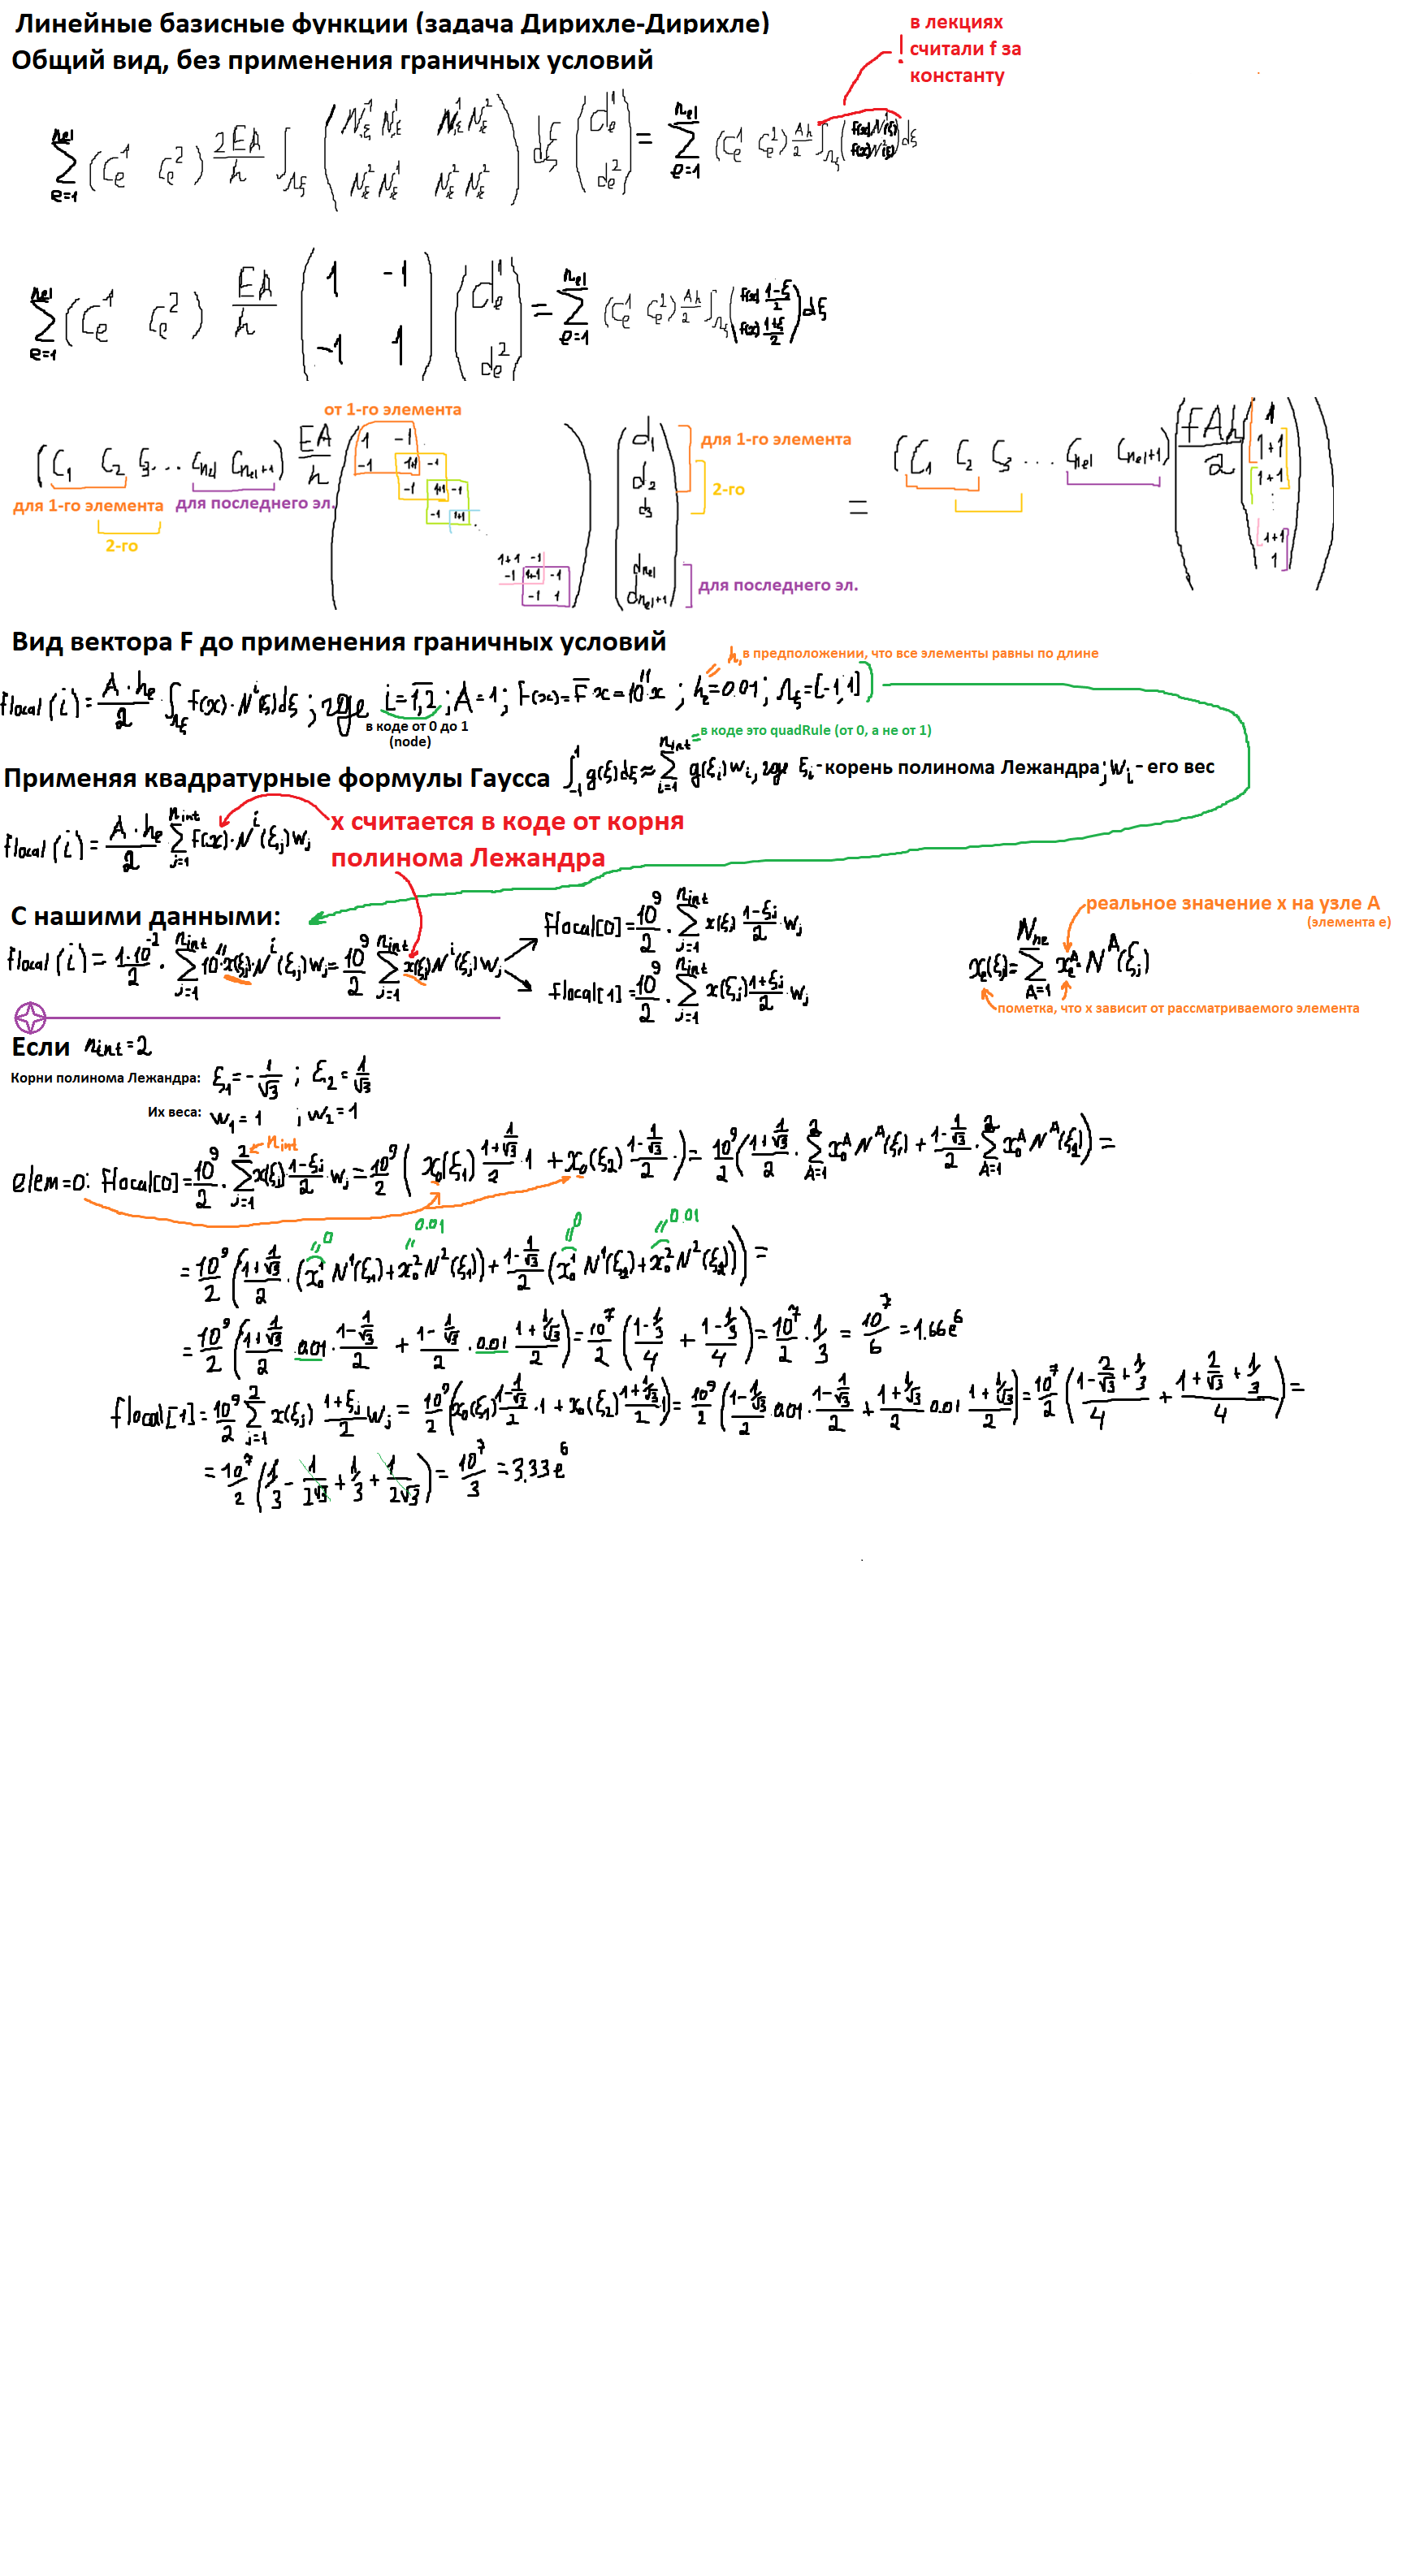 Линейные базисные функции (задача Дирихле-Дирихле)
Общий вид, без применения граничных условий
! в лекциях
считали f за
константу
∑_{e=1}^{nel} (C_e^1 C_e^2) 2EA/h ∫_{Ωξ} (N_{,ξ}^1 N_{,ξ}^1 N_{,ξ}^1 N_{,ξ}^2 ; N_{,ξ}^2 N_{,ξ}^1 N_{,ξ}^2 N_{,ξ}^2) dξ (d_e^1 ; d_e^2) = ∑_{e=1}^{nel} (C_e^1 C_e^2) Ah/2 ∫_{Ωξ} (f(x)N^1(ξ) ; f(x)N^2(ξ)) dξ
∑_{e=1}^{nel} (C_e^1 C_e^2) EA/h (1 -1 ; -1 1) (d_e^1 ; d_e^2) = ∑_{e=1}^{nel} (C_e^1 C_e^2) Ah/2 ∫_{Ωξ} (f(x) (1-ξ)/2 ; f(x) (1+ξ)/2) dξ
от 1-го элемента
(C_1 C_2 C_3 ... C_{nel} C_{nel+1}) EA/h (1 -1 ; -1 1+1 -1 ; -1 1+1 -1 ; -1 1+1 ⋱ ; 1+1 -1 ; -1 1+1 -1 ; -1 1) (d_1 ; d_2 ; d_3 ; d_{nel} ; d_{nel+1}) = (C_1 C_2 C_3 ... C_{nel} C_{nel+1}) (fAh/2 (1 ; 1+1 ; 1+1 ; ⋮ ; 1+1 ; 1))
для 1-го элемента
2-го
для последнего эл.
для 1-го элемента
для последнего эл.
2-го
Вид вектора F до применения граничных условий
h, в предположении, что все элементы равны по длине
flocal(i) = A·h_e/2 ∫_{Ωξ} f(x)·N^i(ξ)dξ ; где i=1,2 ; A=1 ; f(x)=F̄x=10^11·x ; h_e=0.01 ; Ωξ=[-1,1]
в коде от 0 до 1
(node)
= в коде это quadRule (от 0, а не от 1)
Применяя квадратурные формулы Гаусса ∫_{-1}^{1} g(ξ)dξ ≈ ∑_{i=1}^{nint} g(ξ_i)w_i, где ξ_i - корень полинома Лежандра; w_i - его вес
flocal(i) = A·h_e/2 ∑_{j=1}^{nint} f(x)·N^i(ξ_j)w_j
x считается в коде от корня
полинома Лежандра
С нашими данными:
flocal(i) = 1·10^-2/2 · ∑_{j=1}^{nint} 10^11·x(ξ_j)·N^i(ξ_j)w_j = 10^9/2 ∑_{j=1}^{nint} x(ξ_j)N^i(ξ_j)w_j
flocal[0] = 10^9/2 · ∑_{j=1}^{nint} x(ξ_j) (1-ξ_j)/2 · w_j
flocal[1] = 10^9/2 · ∑_{j=1}^{nint} x(ξ_j) (1+ξ_j)/2 · w_j
реальное значение x на узле А
(элемента e)
x_e(ξ_j) = ∑_{A=1}^{Nne} x_e^A · N^A(ξ_j)
пометка, что x зависит от рассматриваемого элемента
Если nint=2
Корни полинома Лежандра: ξ_1 = -1/√3 ; ξ_2 = 1/√3
Их веса: w_1 = 1 ; w_2 = 1
nint
elem=0: flocal[0] = 10^9/2 · ∑_{j=1}^{2} x(ξ_j) (1-ξ_j)/2 · w_j = 10^9/2 (x_0(ξ_1) (1+1/√3)/2 · 1 + x_0(ξ_2) (1-1/√3)/2 ·) = 10^9/2 ((1+1/√3)/2 · ∑_{A=1}^{2} x_0^A N^A(ξ_1) + (1-1/√3)/2 · ∑_{A=1}^{2} x_0^A N^A(ξ_2)) =
0 0.01 0 0.01
= 10^9/2 ((1+1/√3)/2 · (x_0^1 N^1(ξ_1) + x_0^2 N^2(ξ_1)) + (1-1/√3)/2 (x_0^1 N^1(ξ_2) + x_0^2 N^2(ξ_2))) =
= 10^9/2 ((1+1/√3)/2 · 0.01 · (1-1/√3)/2 + (1-1/√3)/2 · 0.01 · (1+1/√3)/2) = 10^7/2 ((1-1/3)/4 + (1-1/3)/4) = 10^7/2 · 1/3 = 10^7/6 = 1.66e^6
flocal[1] = 10^9/2 ∑_{j=1}^{2} x(ξ_j) (1+ξ_j)/2 w_j = 10^9/2 (x_0(ξ_1) (1-1/√3)/2 · 1 + x_0(ξ_2) (1+1/√3)/2 · 1) = 10^9/2 ((1-1/√3)/2 · 0.01 · (1-1/√3)/2 + (1+1/√3)/2 · 0.01 · (1+1/√3)/2) = 10^7/2 ((1-2/√3+1/3)/4 + (1+2/√3+1/3)/4) =
= 10^7/2 (1/3 - 1/2√3 + 1/3 + 1/2√3) = 10^7/3 = 3.33e^6